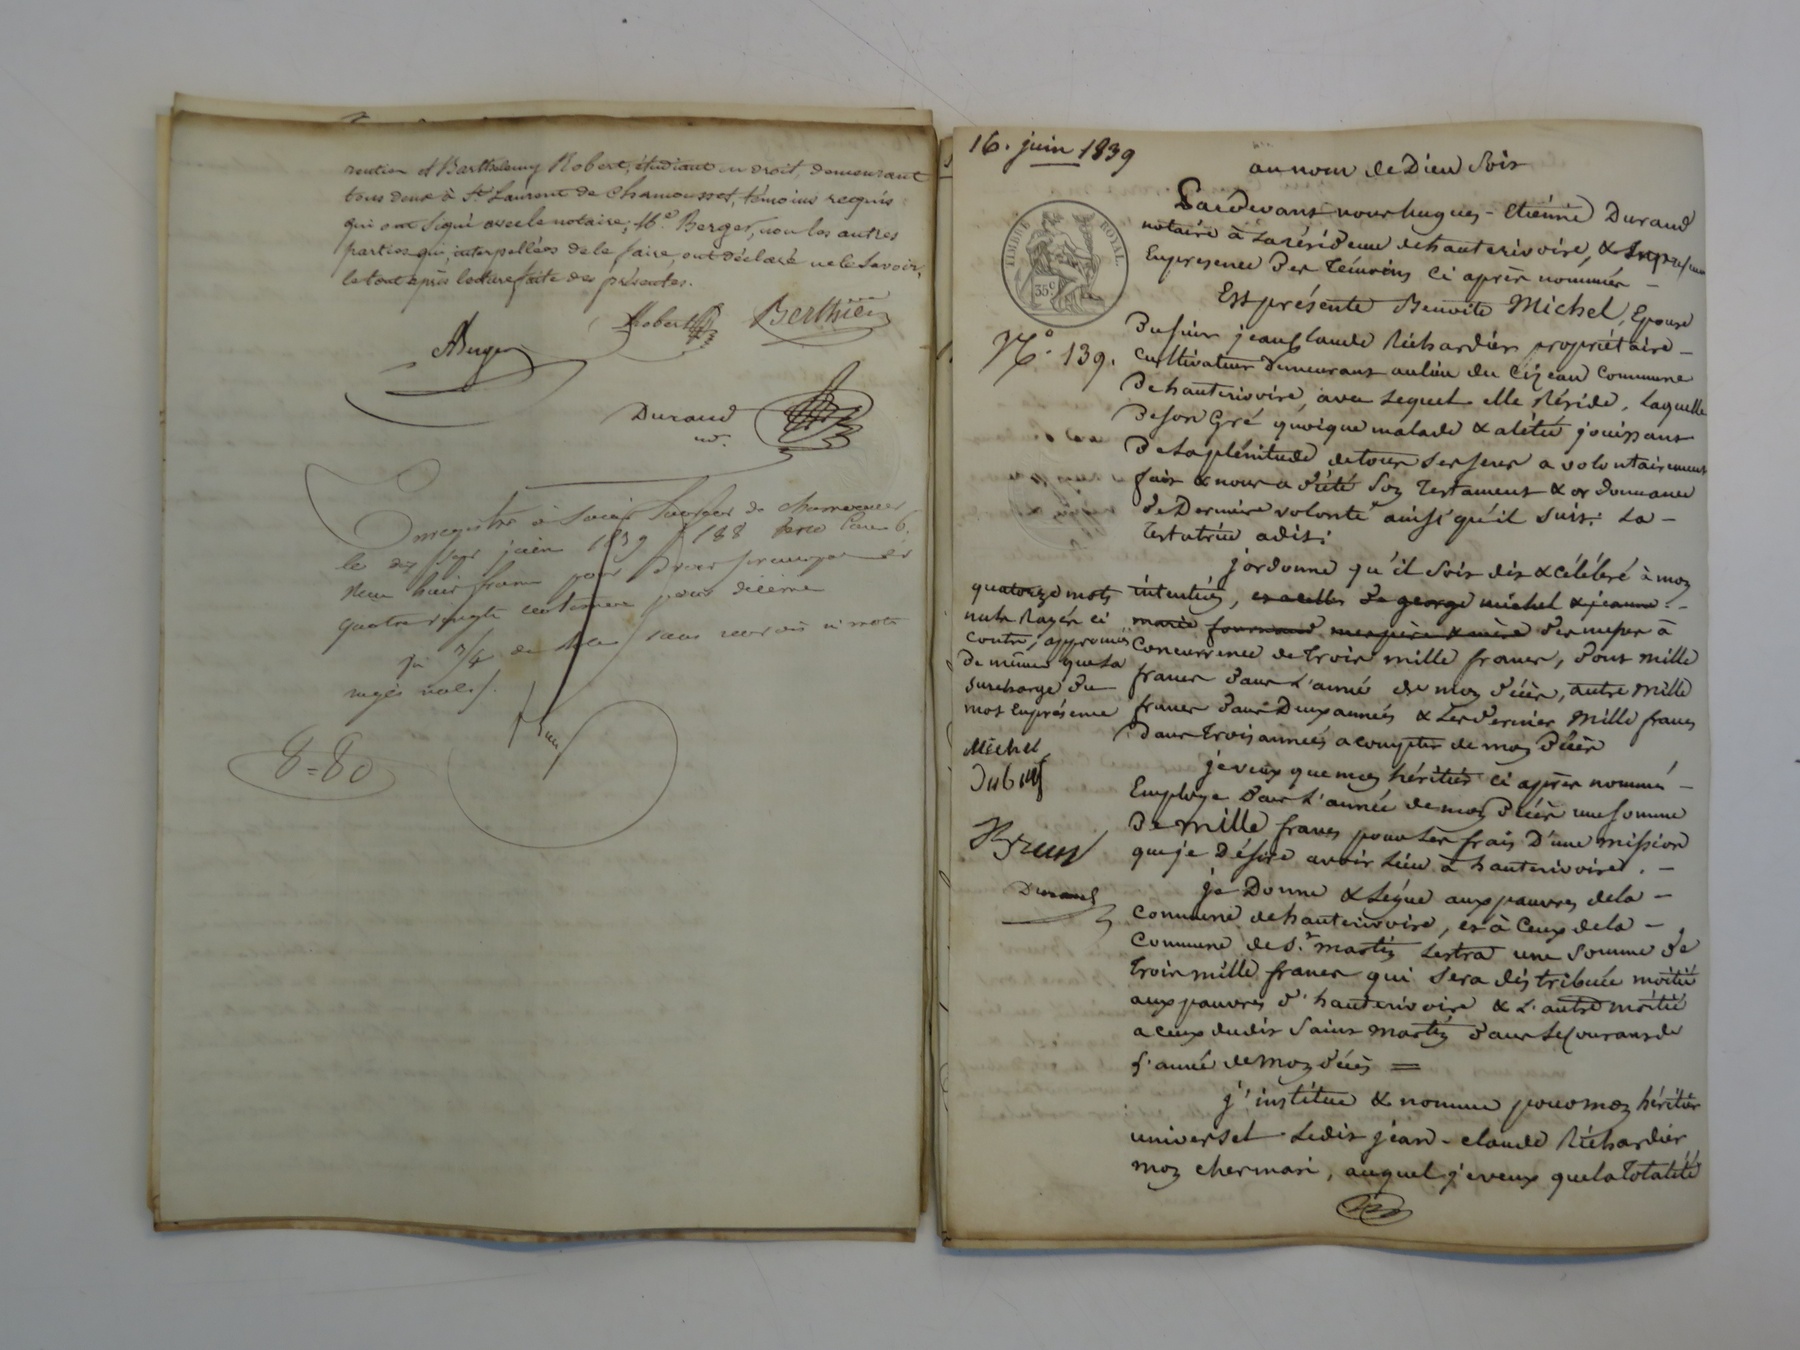 rentier et Barthélemy Robert, étudiant en droit, demeurant
tous deux à St Laurent de Chamousset, témoins requis
qui ont signé avec le notaire, Mr. Berger, non les autres
parties qui, interpellées de le faire, ont déclaré ne le savoir,
le tout après lecture faite des présentes.
Robert Berthier
ABerger
Durand
nre.
Enregistré à Saint Laurent de chamousset
le dix sept juin 1839 f 188 verso Case 6.
Reçu huit francs pour droit principal et
quatre vingts centimes pour décime
renvois ni mots
rayés nuls
8=80
16. juin 1839
au nom de Dieu soit
Pardevant nous hugues - Etienne Durand
notaire à la résidence de hauterivoire, &
En presence des témoins ci après nommés -
Est présente Benoite Michel, Epouse
Du sieur jean Claude Richardier propriétaire -
Cultivateur demeurant au lieu du Cizeau Commune
De hauterivoire, avec Lequel elle Réside, Laquelle
De son Gré quoique malade & alitée jouissant
De La plénitude de tous ses sens a volontairement
fait & nous a dicté son testament & ordonnance
de Derniere volonté ainsi qu'il suit: La -
Testatrice a dit:
j'ordonne qu'il soit dit & célébré à mes
intentions, et a celles de george michel & jeanne -
marie fournand mes père & mère des messes à
Concurrence de trois mille francs, dont mille
francs dans L'année de mon décès, autre mille
francs dans Deux années & Les dernier Mille francs
Dans trois années a compter de mon décès
je veux que mon héritier ci après nommé -
Employe dans L'année de mon décès une somme
De mille francs pour Les frais D'une mission
que je Désire avoir Lieu à hauterivoire. -
je Donne & Lègue aux pauvres de la -
Commune de hauterivoire, et à Ceux de la -
Commune de St martin Lestra une somme de
trois mille francs qui sera distribuée moitié
aux pauvres d'hauterivoire & L'autre moitié
a ceux dudit Saint Martin dans Le Courant de
L'année de mon décès =
j'institue & nomme pour mon héritier
universel Ledit jean - claude Richardier
mon cher mari, auquel je veux que la totalité
TIMBRE ROYAL.
35c
No. 139.
quatorze mots
nuls Rayés ci
contre, approuvés
De même que La
surcharge du
mot En présence
Michel
Brun
Durand